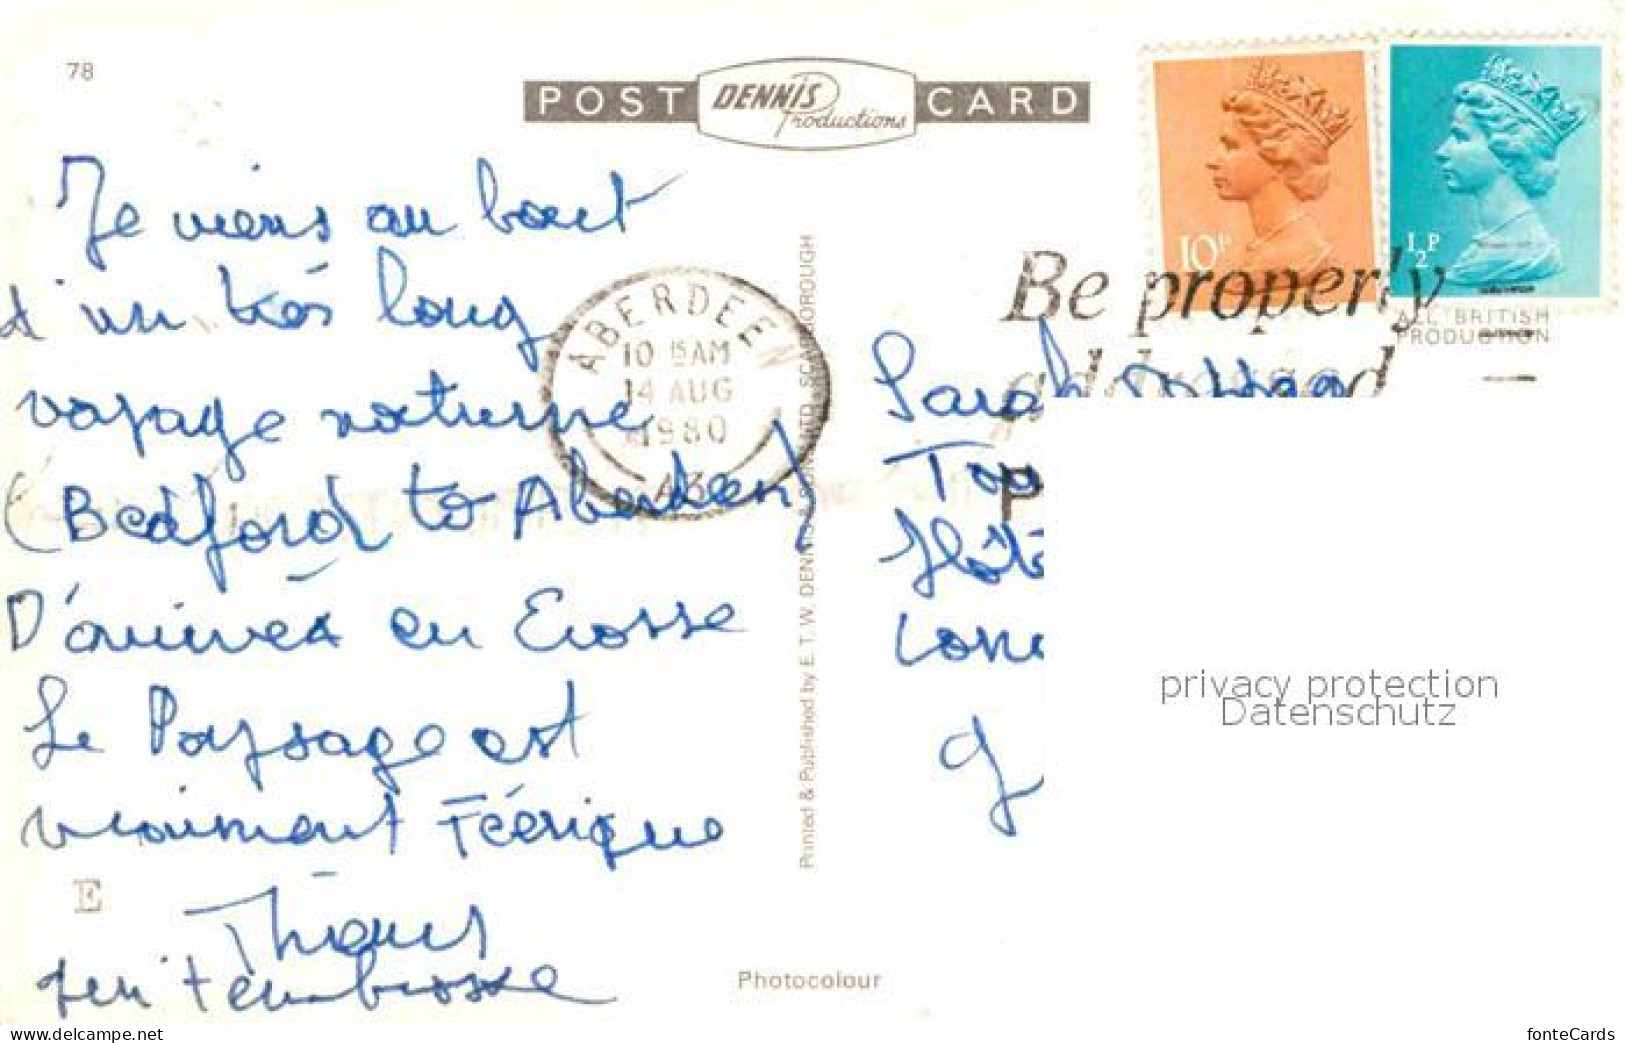 78
POST DENNIS Productions CARD
10P
½P
Je viens au bout
d'un très long
voyage nocturne
(Bedford to Aberdeen)
D'arrivée en Ecosse
Le Paysage est
vraiment Féérique
Thierry
qui t'embrasse
E
ABERDEEN
10 15 AM
14 AUG
1980
A3
Be properly
addressed
P
ALL BRITISH
PRODUCTION
Printed & Published by E. T. W. DENNIS & SONS LTD., SCARBOROUGH
Sarah
Hôt
Lon
privacy protection
Datenschutz
Photocolour
www.delcampe.net
fonteCards